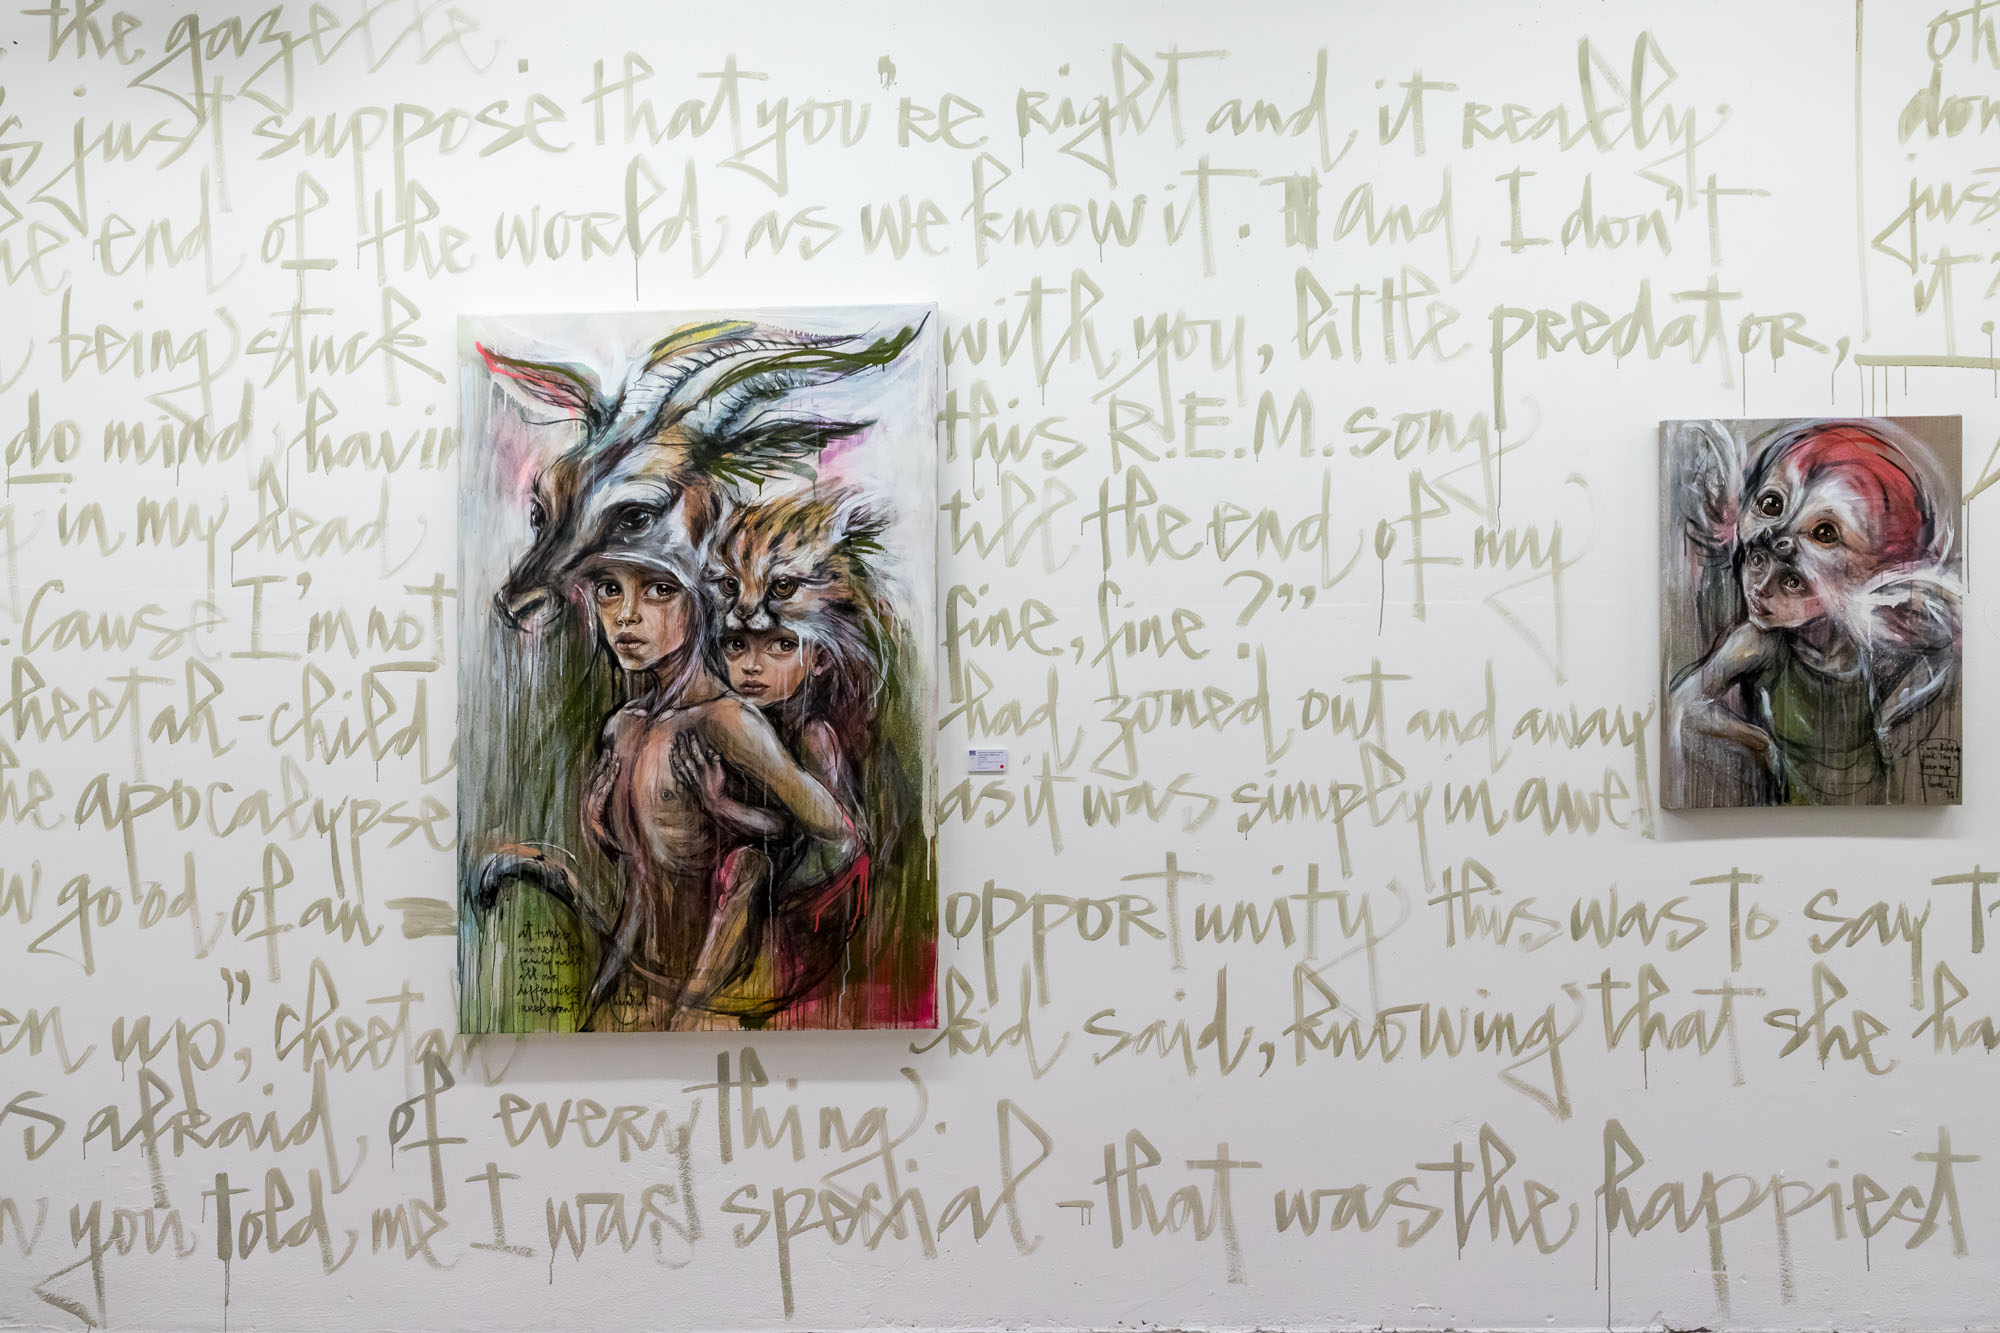 the gazette.
just suppose that you're right and it really
end of the world as we know it. and I don't
being stuck with you, little predator,
do mind having this R.E.M. song
in my head till the end of my
. Cause I'm not fine, fine?"
cheetah-child had zoned out and away
the apocalypse as it was simply in awe
good of an opportunity this was to say
up," cheetah kid said, knowing that she
afraid of everything.
you told me I was special - that was the happiest
oh
don
just
it?
at times
our need for
family makes
all our
differences
irrelevant.